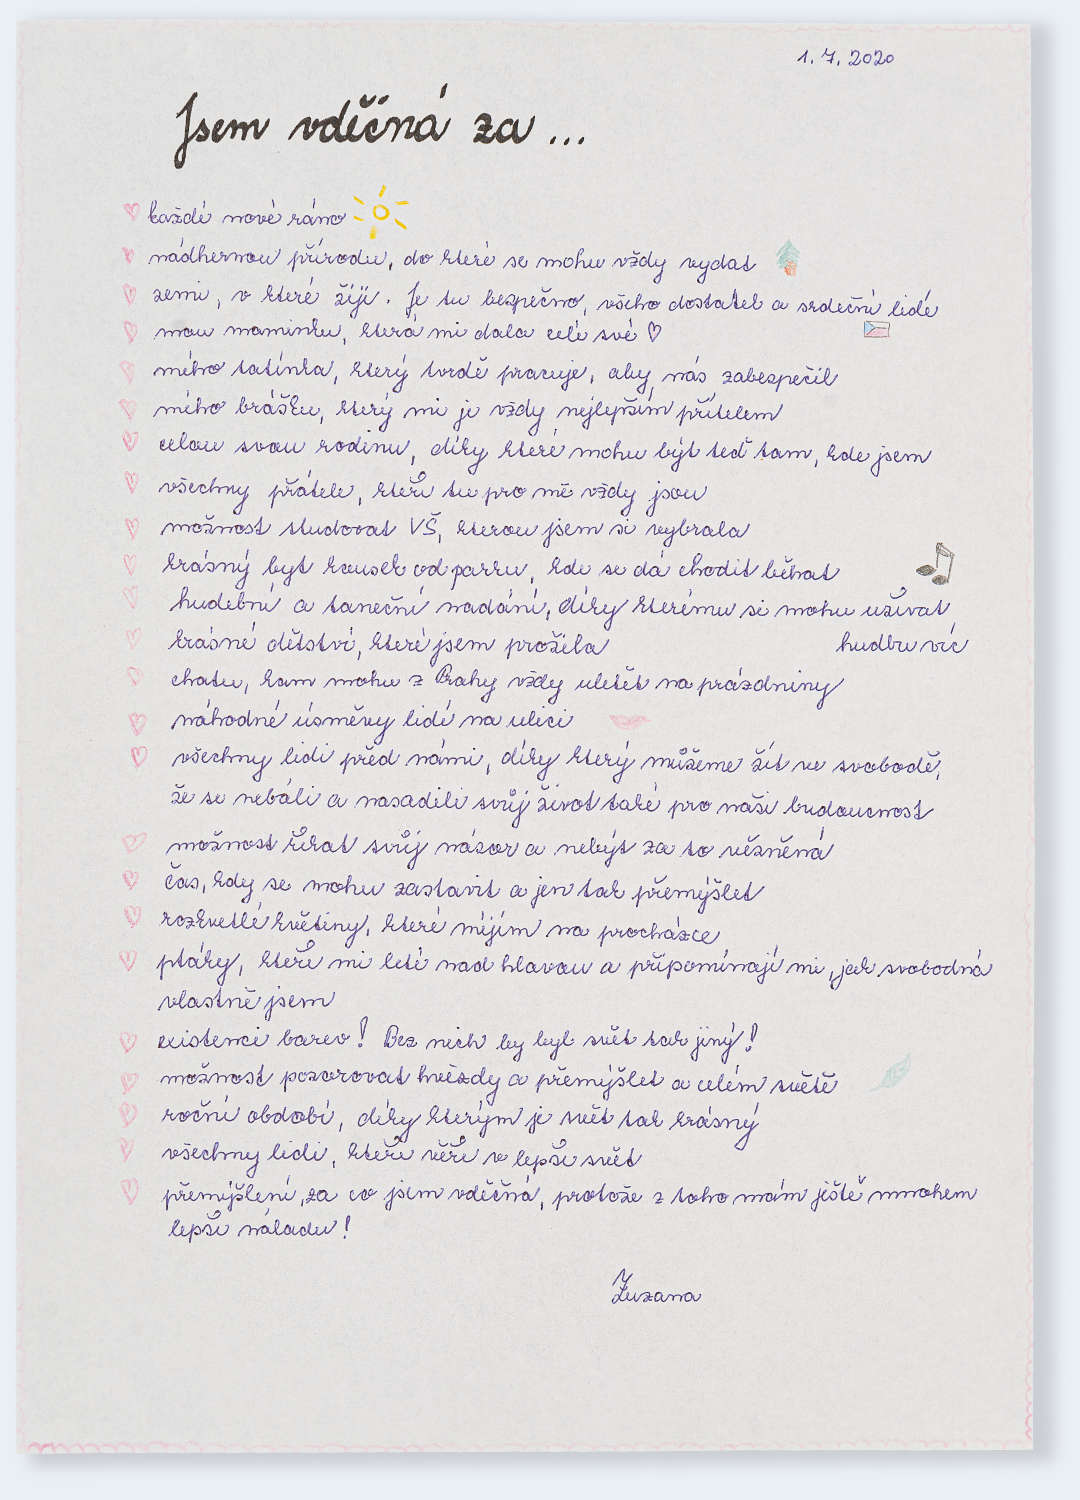 1. 7. 2020
Jsem vděčná za ...
každé nové ráno
nádhernou přírodu, do které se mohu vždy vydat
zemi, v které žiji. Je tu bezpečno, všeho dostatek a srdeční lidé
mou maminku, která mi dala celé své ♡
mého tatínka, který tvrdě pracuje, aby nás zabezpečil
mého brášku, který mi je vždy nejlepším přítelem
celou svou rodinu, díky které mohu být teď tam, kde jsem
všechny přátele, kteří tu pro mě vždy jsou
možnost studovat VŠ, kterou jsem si vybrala
krásný byt kousek od parku, kde se dá chodit běhat
hudební a taneční nadání, díky kterému si mohu užívat
hudbu víc
krásné dětství, které jsem prožila
chatu, kam mohu z Prahy vždy uletět na prázdniny
náhodné úsměvy lidí na ulici
všechny lidi před námi, díky který můžeme žít ve svobodě,
že se nebáli a nasadili svůj život také pro naši budoucnost
možnost říkat svůj názor a nebýt za to vězněná
čas, kdy se mohu zastavit a jen tak přemýšlet
rozkvetlé květiny, které míjím na procházce
ptáky, kteří mi letí nad hlavou a připomínají mi, jak svobodná
vlastně jsem
existenci barev! Bez nich by byl svět tak jiný!
možnost pozorovat hvězdy a přemýšlet o celém světě
roční období, díky kterým je svět tak krásný
všechny lidi, kteří věří v lepší svět
přemýšlení, za co jsem vděčná, protože z toho mám ještě mnohem
lepší náladu!
Zuzana